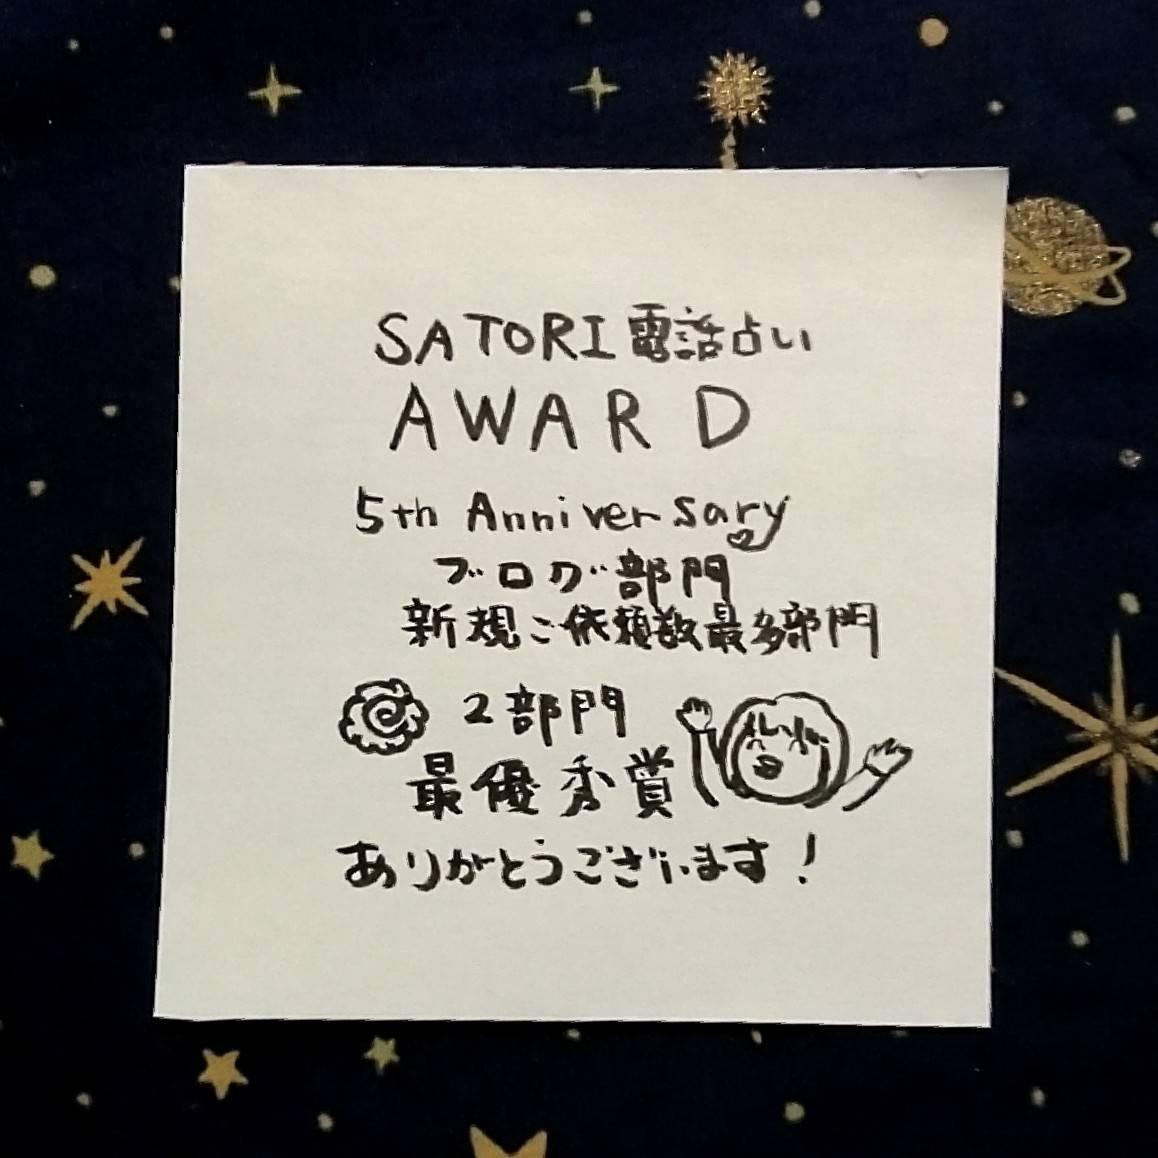 SATORI電話占い
AWARD
5th Anniversary
ブログ部門
新規ご依頼数最多部門
2部門
最優秀賞
ありがとうございます!